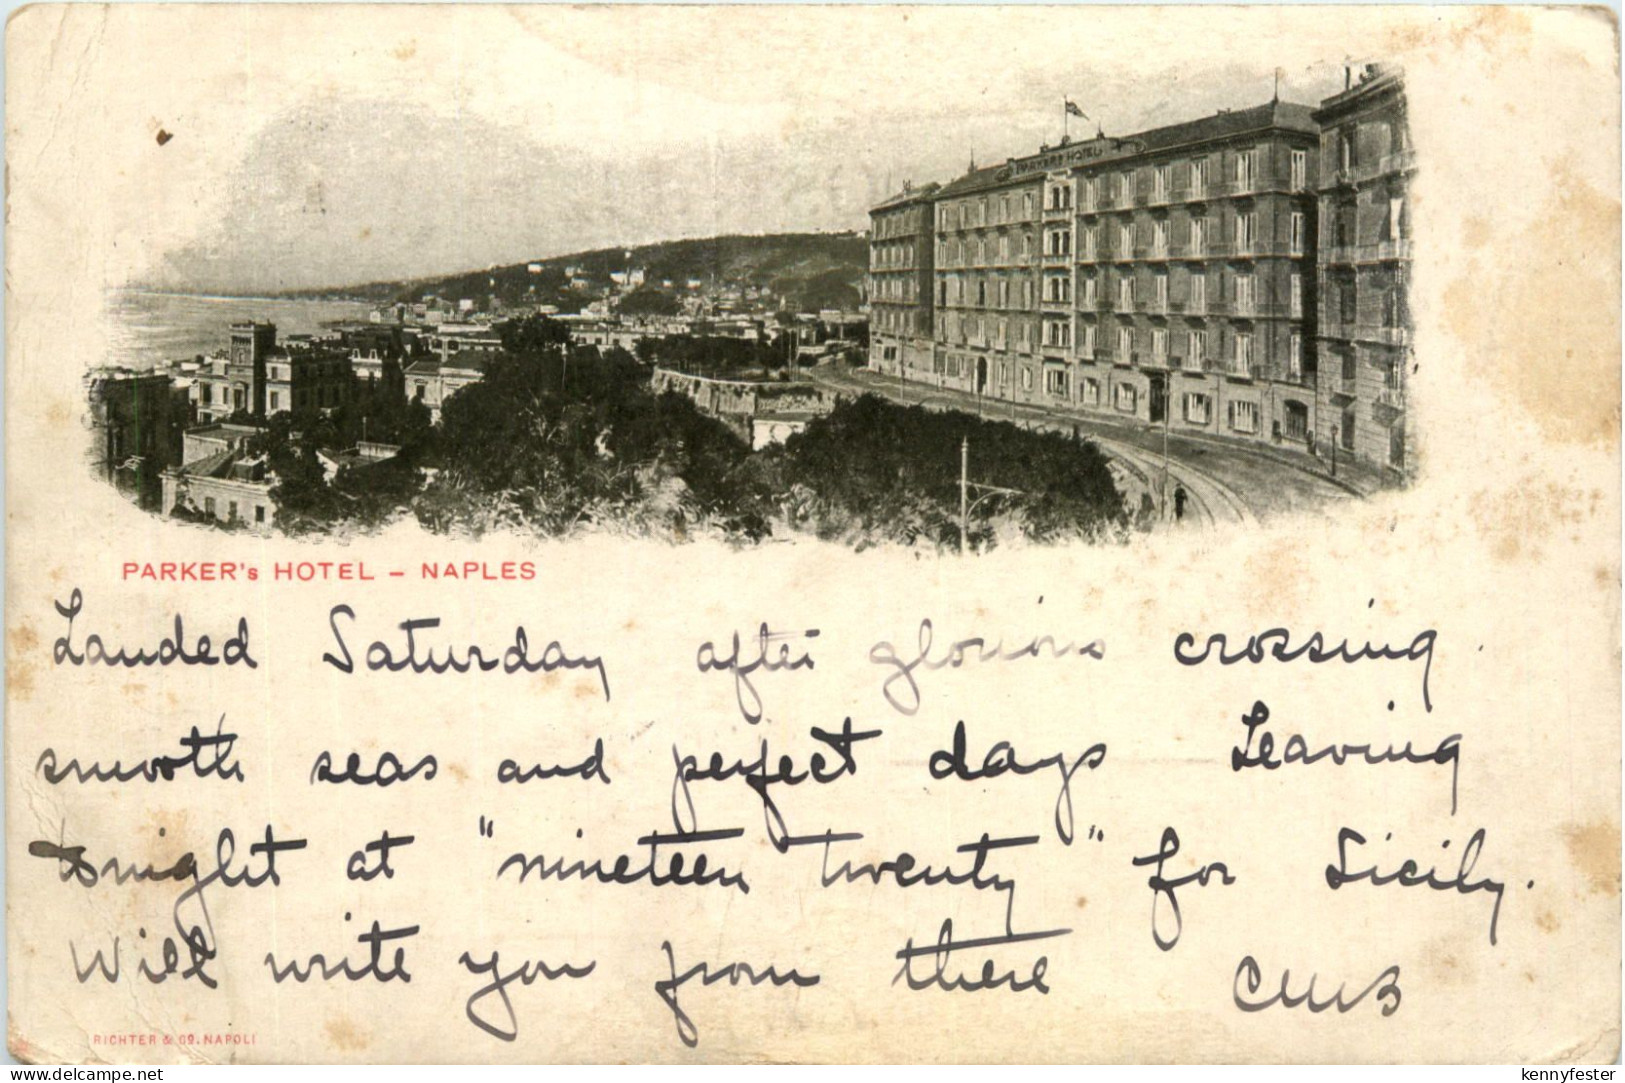 PARKER'S HOTEL
PARKER's HOTEL - NAPLES
Landed Saturday after glorious crossing.
smooth seas and perfect days Leaving
tonight at "nineteen twenty" for Sicily.
Will write you from there
RICHTER & Co. NAPOLI
www.delcampe.net
kennyfester